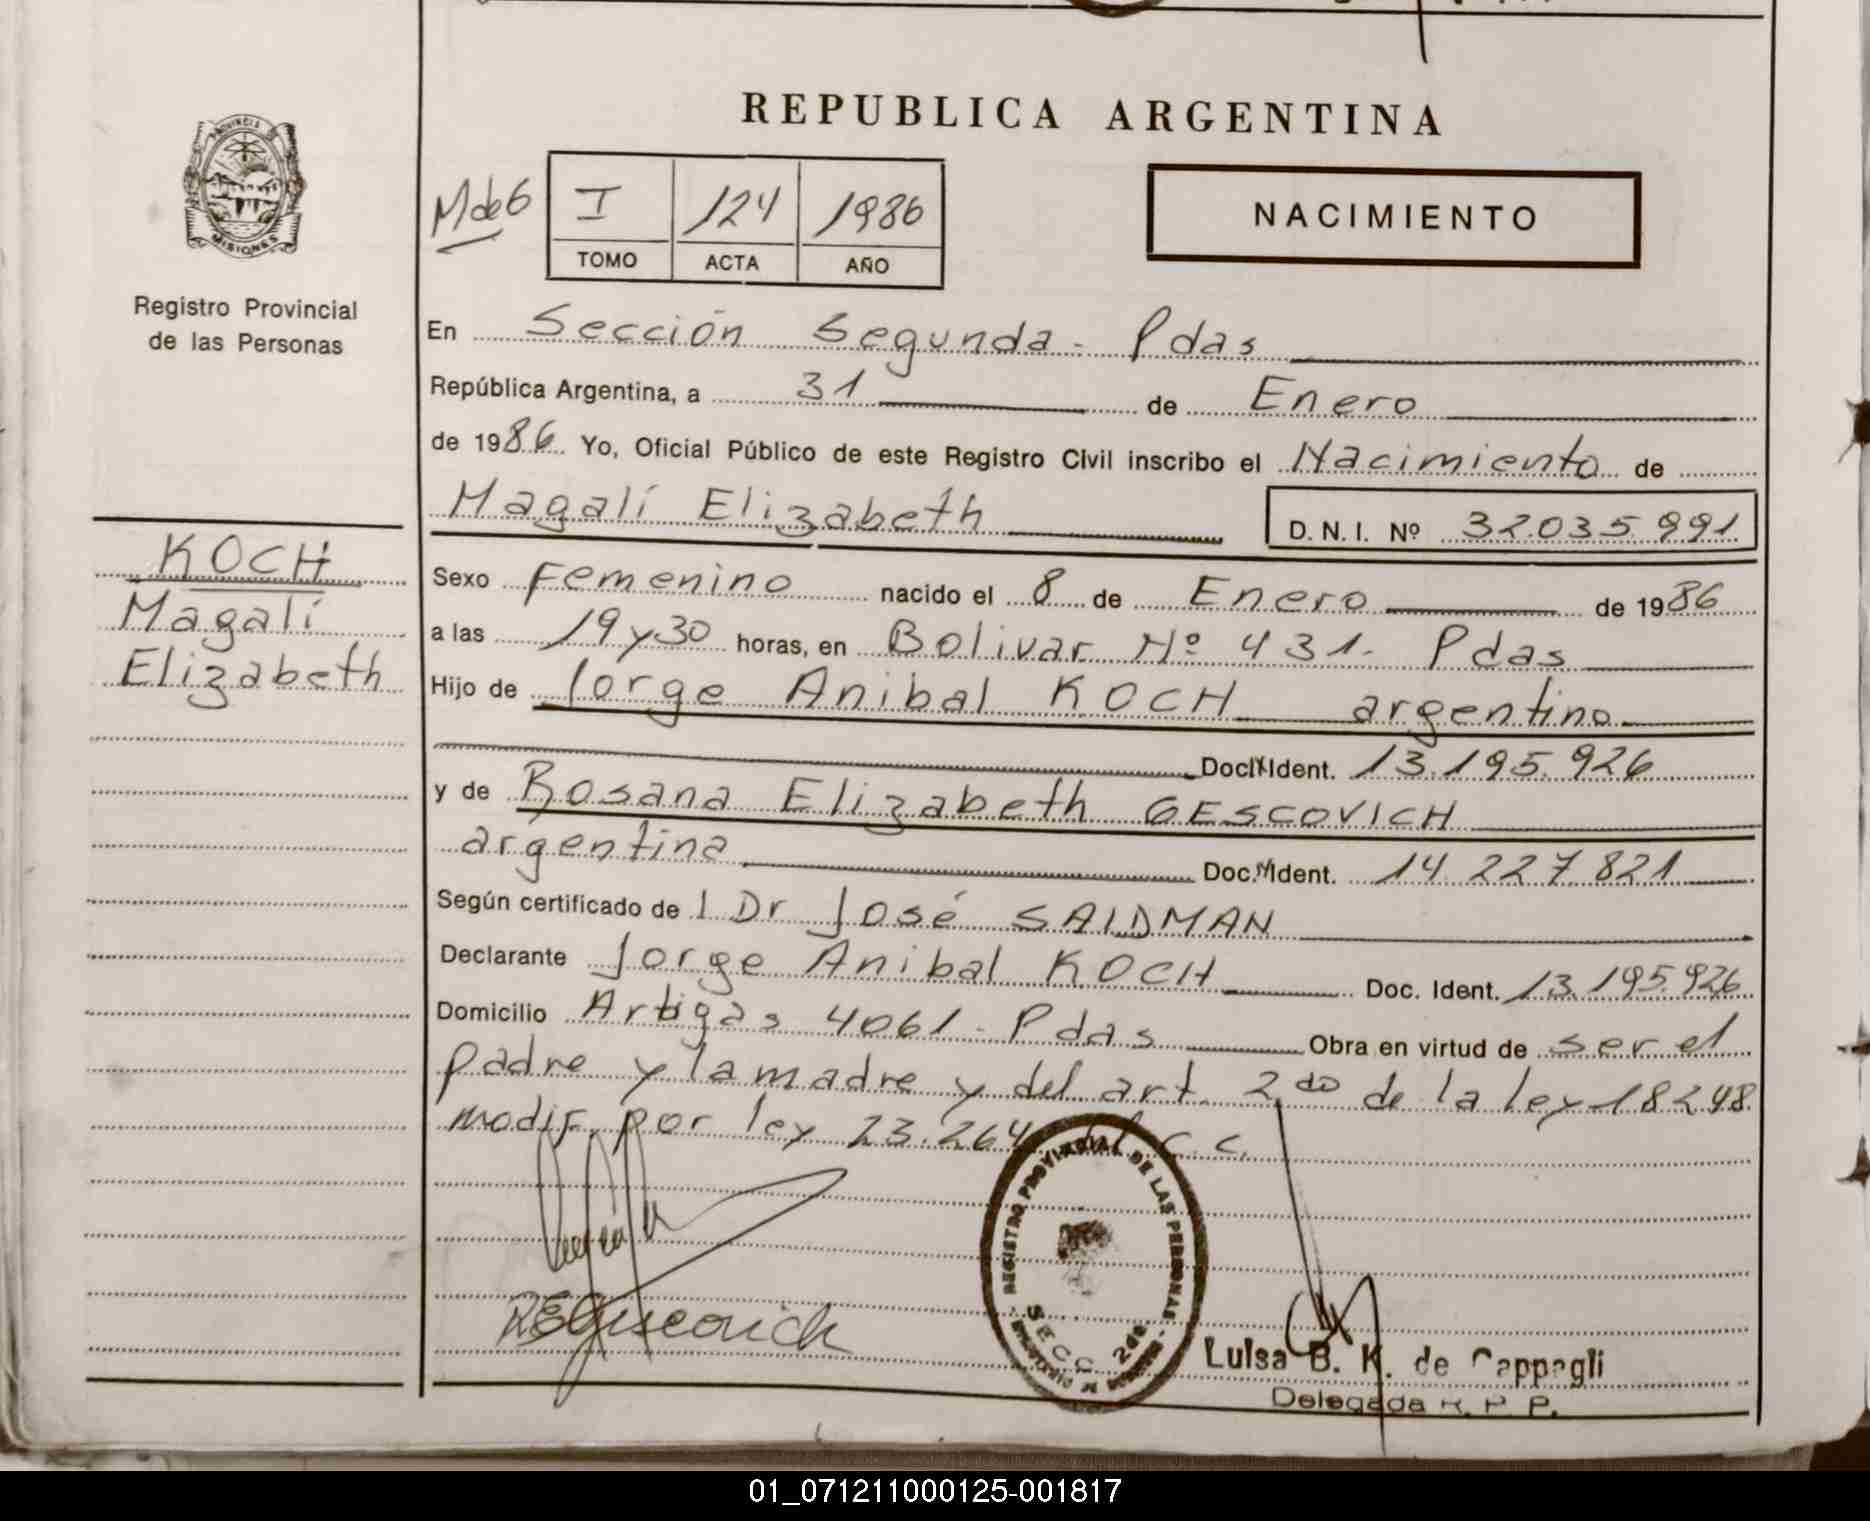 REPUBLICA ARGENTINA
PROVINCIA DE
MISIONES
Registro Provincial
de las Personas
M de 6
I 124 1986
TOMO ACTA AÑO
NACIMIENTO
En Sección Segunda - Pdas
República Argentina, a 31 de Enero
de 1986 Yo, Oficial Público de este Registro Civil inscribo el Nacimiento de
Magalí Elizabeth
D. N. I. Nº 32.035.991
KOCH
Magalí
Elizabeth
Sexo Femenino nacido el 8 de Enero de 1986
a las 19 y 30 horas, en Bolivar Nº 431. Pdas
Hijo de Jorge Anibal KOCH argentino
Doc. Ident. 13.195.926
y de Rosana Elizabeth GESCOVICH
argentina Doc. Ident. 14.227.821
Según certificado de l Dr José SAIDMAN
Declarante Jorge Anibal KOCH Doc. Ident. 13.195.926
Domicilio Artigas 4061 - Pdas Obra en virtud de ser el
padre y la madre y del art. 2do de la ley 18248
modif. por ley 23.264 C.C.
REGISTRO PROVINCIAL DE LAS PERSONAS
SECC 2da
REGescovich
Luisa B. K. de Cappagli
Delegada R. P. P.
01_071211000125-001817